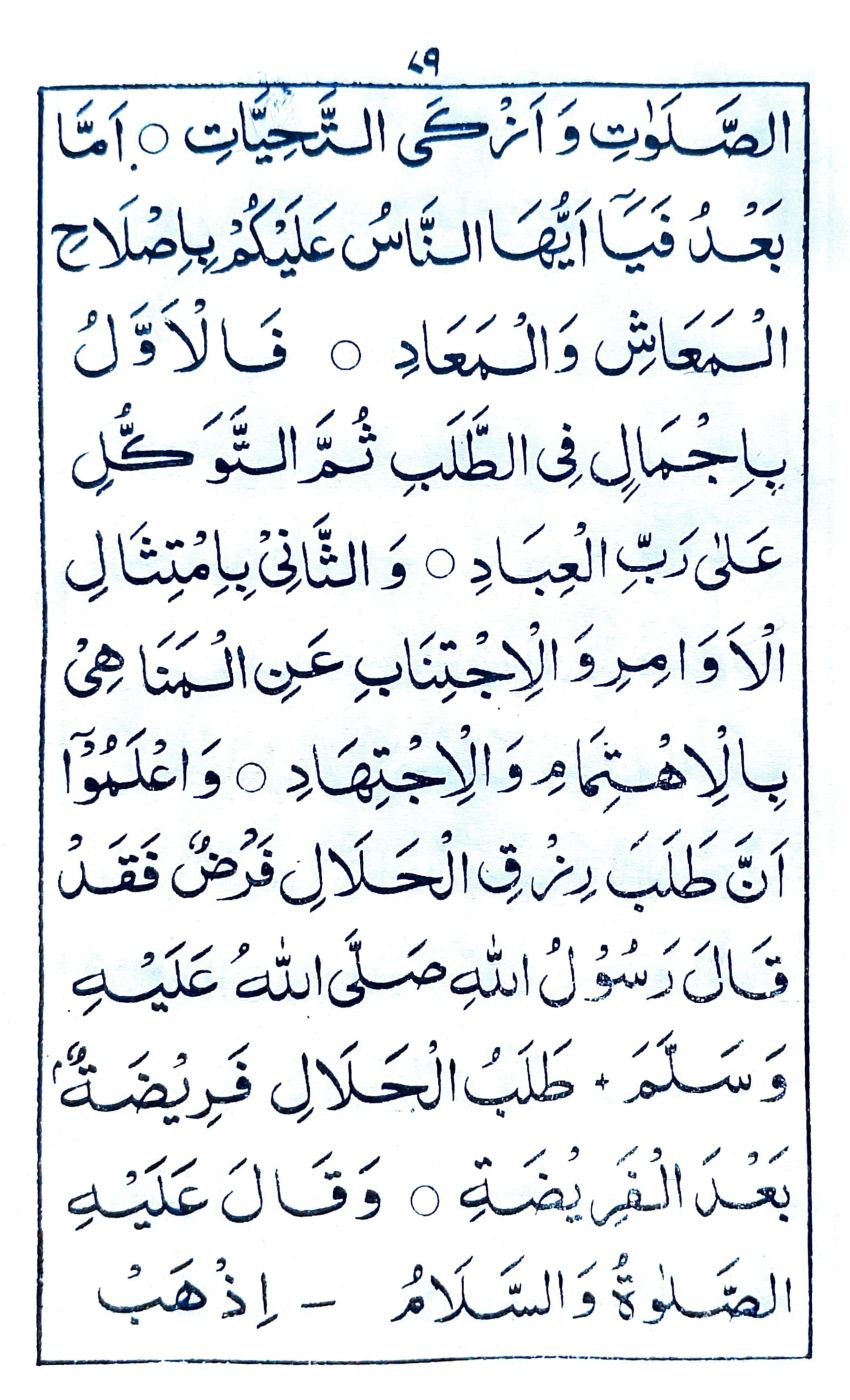 ۸۹
الصَّلَوٰتِ وَ اَزْكَى التَّحِيَّاتِ ○ اَمَّا
بَعْدُ فَيَآ اَيُّهَا النَّاسُ عَلَيْكُمْ بِاِصْلَاحِ
الْمَعَاشِ وَالْمَعَادِ ○ فَالْاَوَّلُ
بِاِجْمَالٍ فِى الطَّلَبِ ثُمَّ التَّوَكُّلِ
عَلٰى رَبِّ الْعِبَادِ ○ وَالثَّانِىْ بِاِمْتِثَالِ
الْاَوَامِرِ وَالْاِجْتِنَابِ عَنِ الْمَنَاهِىْ
بِالْاِهْتِمَامِ وَالْاِجْتِهَادِ ○ وَاعْلَمُوْٓا
اَنَّ طَلَبَ رِزْقِ الْحَلَالِ فَرْضٌ فَقَدْ
قَالَ رَسُوْلُ اللهِ صَلَّى اللهُ عَلَيْهِ
وَسَلَّمَ + طَلَبُ الْحَلَالِ فَرِيْضَةٌ م
بَعْدَ الْفَرِيْضَةِ ○ وَقَالَ عَلَيْهِ
الصَّلٰوةُ وَالسَّلَامُ – اِذْهَبْ